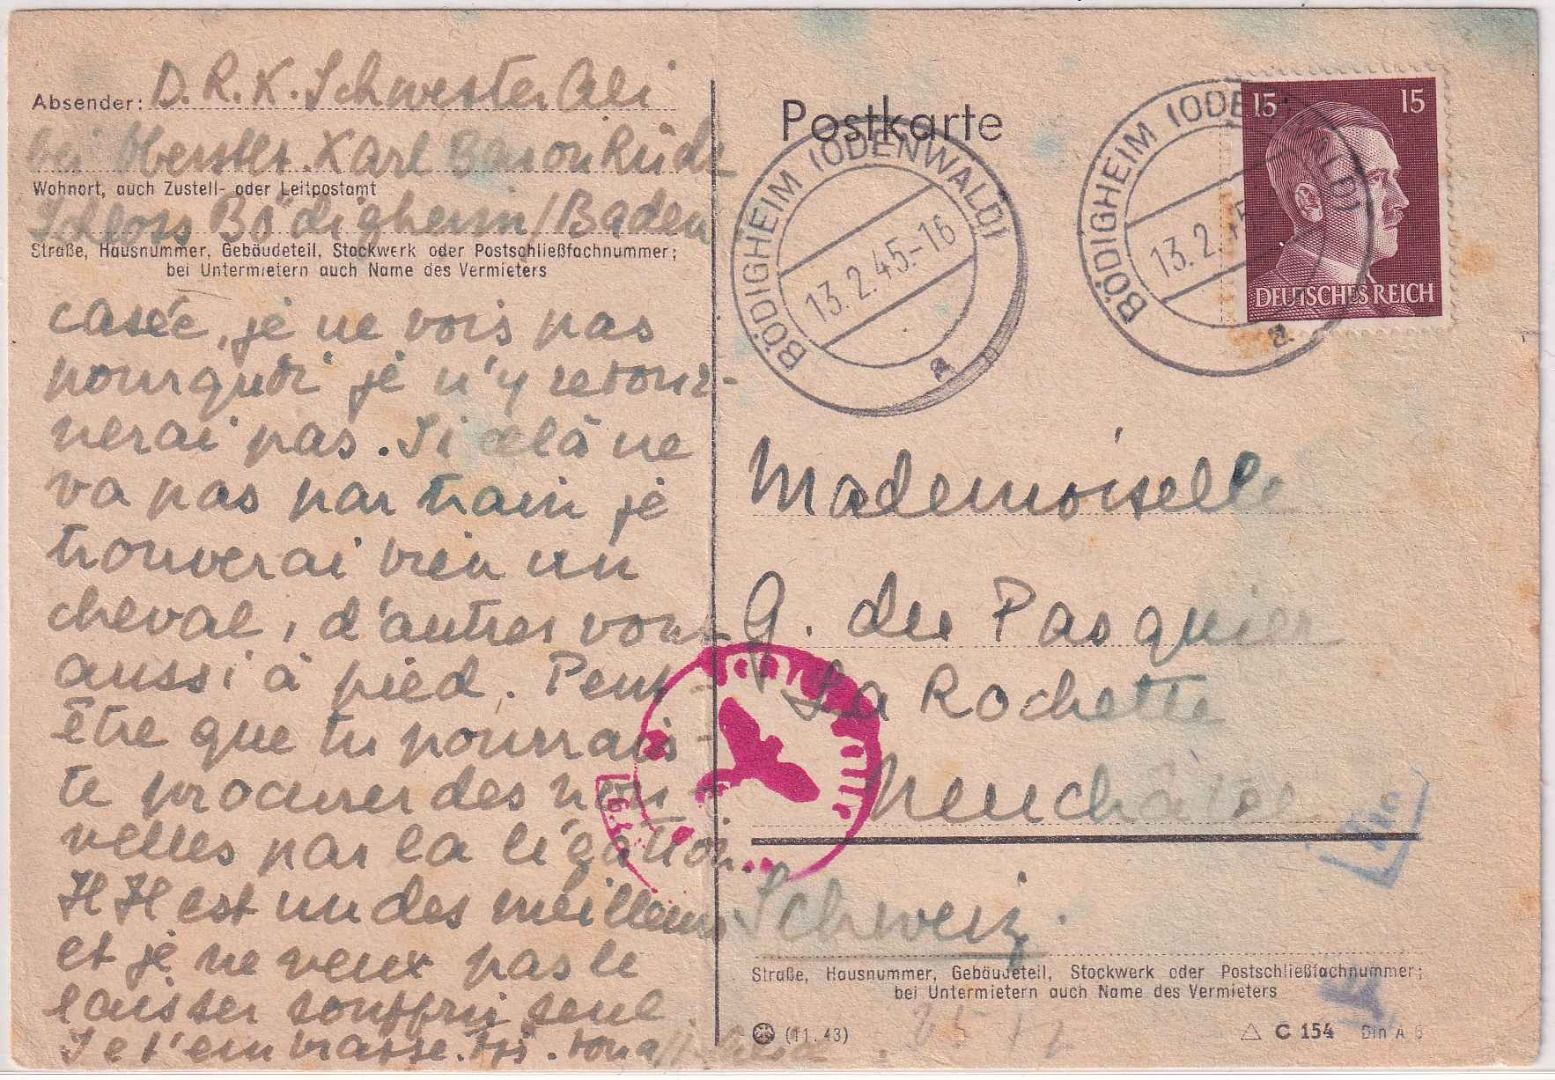 Absender: D.R.K. Schwester Ali
bei Oberstlt. Karl Baron Rüdt
Wohnort, auch Zustell- oder Leitpostamt
Schloss Bödigheim/Baden
Straße, Hausnummer, Gebäudeteil, Stockwerk oder Postschließfachnummer;
bei Untermietern auch Name des Vermieters
casée, je ne vois pas
pourquoi je n'y retour-
nerai pas. Si celà ne
va pas par train je
trouverai bien un
cheval, d'autres vont
aussi à pied. Peut-
être que tu pourrais-
te procurer des nou-
velles par la légation.
HH est un des meilleurs
et je ne veux pas le
laisser souffrir seul.
Je t'embrasse. Tjs. ton
Postkarte
BÖDIGHEIM (ODENWALD)
13.2.45.-16
a
BÖDIGHEIM (ODENWALD)
13.2.45
a
15 15
DEUTSCHES REICH
Mademoiselle
G. du Pasquier
La Rochette
Neuchâtel
Schweiz.
Straße, Hausnummer, Gebäudeteil, Stockwerk oder Postschließfachnummer;
bei Untermietern auch Name des Vermieters
(11.43)
C 154 Din A 6